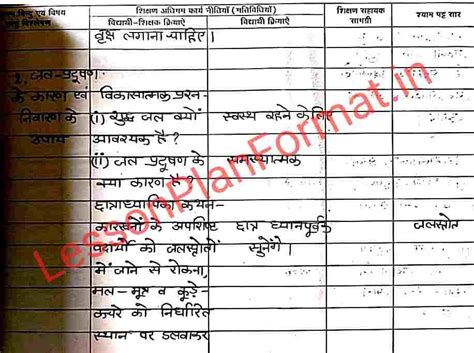 शिक्षण अधिगम कार्य नीतियाँ (गतिविधियाँ)
विद्यार्थी-शिक्षक क्रियाएँ
विद्यार्थी क्रियाएँ
शिक्षण सहायक सामग्री
श्याम पट्ट सार
वृक्ष लगाना चाहिए।
2. जल-प्रदूषण
के कारण एवं विकासात्मक प्रश्न-
निवारण के (i) शुद्ध जल क्यों स्वस्थ रहने के लिए
उपाय आवश्यक है?
(ii) जल प्रदूषण के समस्यात्मक
क्या कारण है?
छात्राध्यापिका कथन-
कारखानों के अपशिष्ट छात्र ध्यानपूर्वक जलस्रोत
पदार्थों को जलस्रोतों सुनेंगे।
में जाने से रोकना,
मल-मूत्र व कूड़े-
कचरे को निर्धारित
स्थान पर डलवाकर
LessonPlanFormat.in